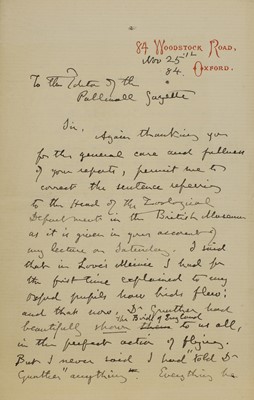 84 Woodstock Road,
Oxford.
Nov. 25th
84.
To the Editor of the
Pallmall Gazette
Sir,
Again thanking you
for the general care and fullness
of your reports, permit me to
correct the sentence refering
to the Head of the Zoological
Department in the British Museum
as it is given in your account of
my lecture on Saturday. I said
that in Love's Meinie I had for
the first time explained to my
Oxford pupils how birds flew;
and that now, Dr Gunther had
"The Birds of England"
beautifully shown to us all,
in the perfect action of flying.
But I never said I had "told Dr
Gunther" anything. Everything he